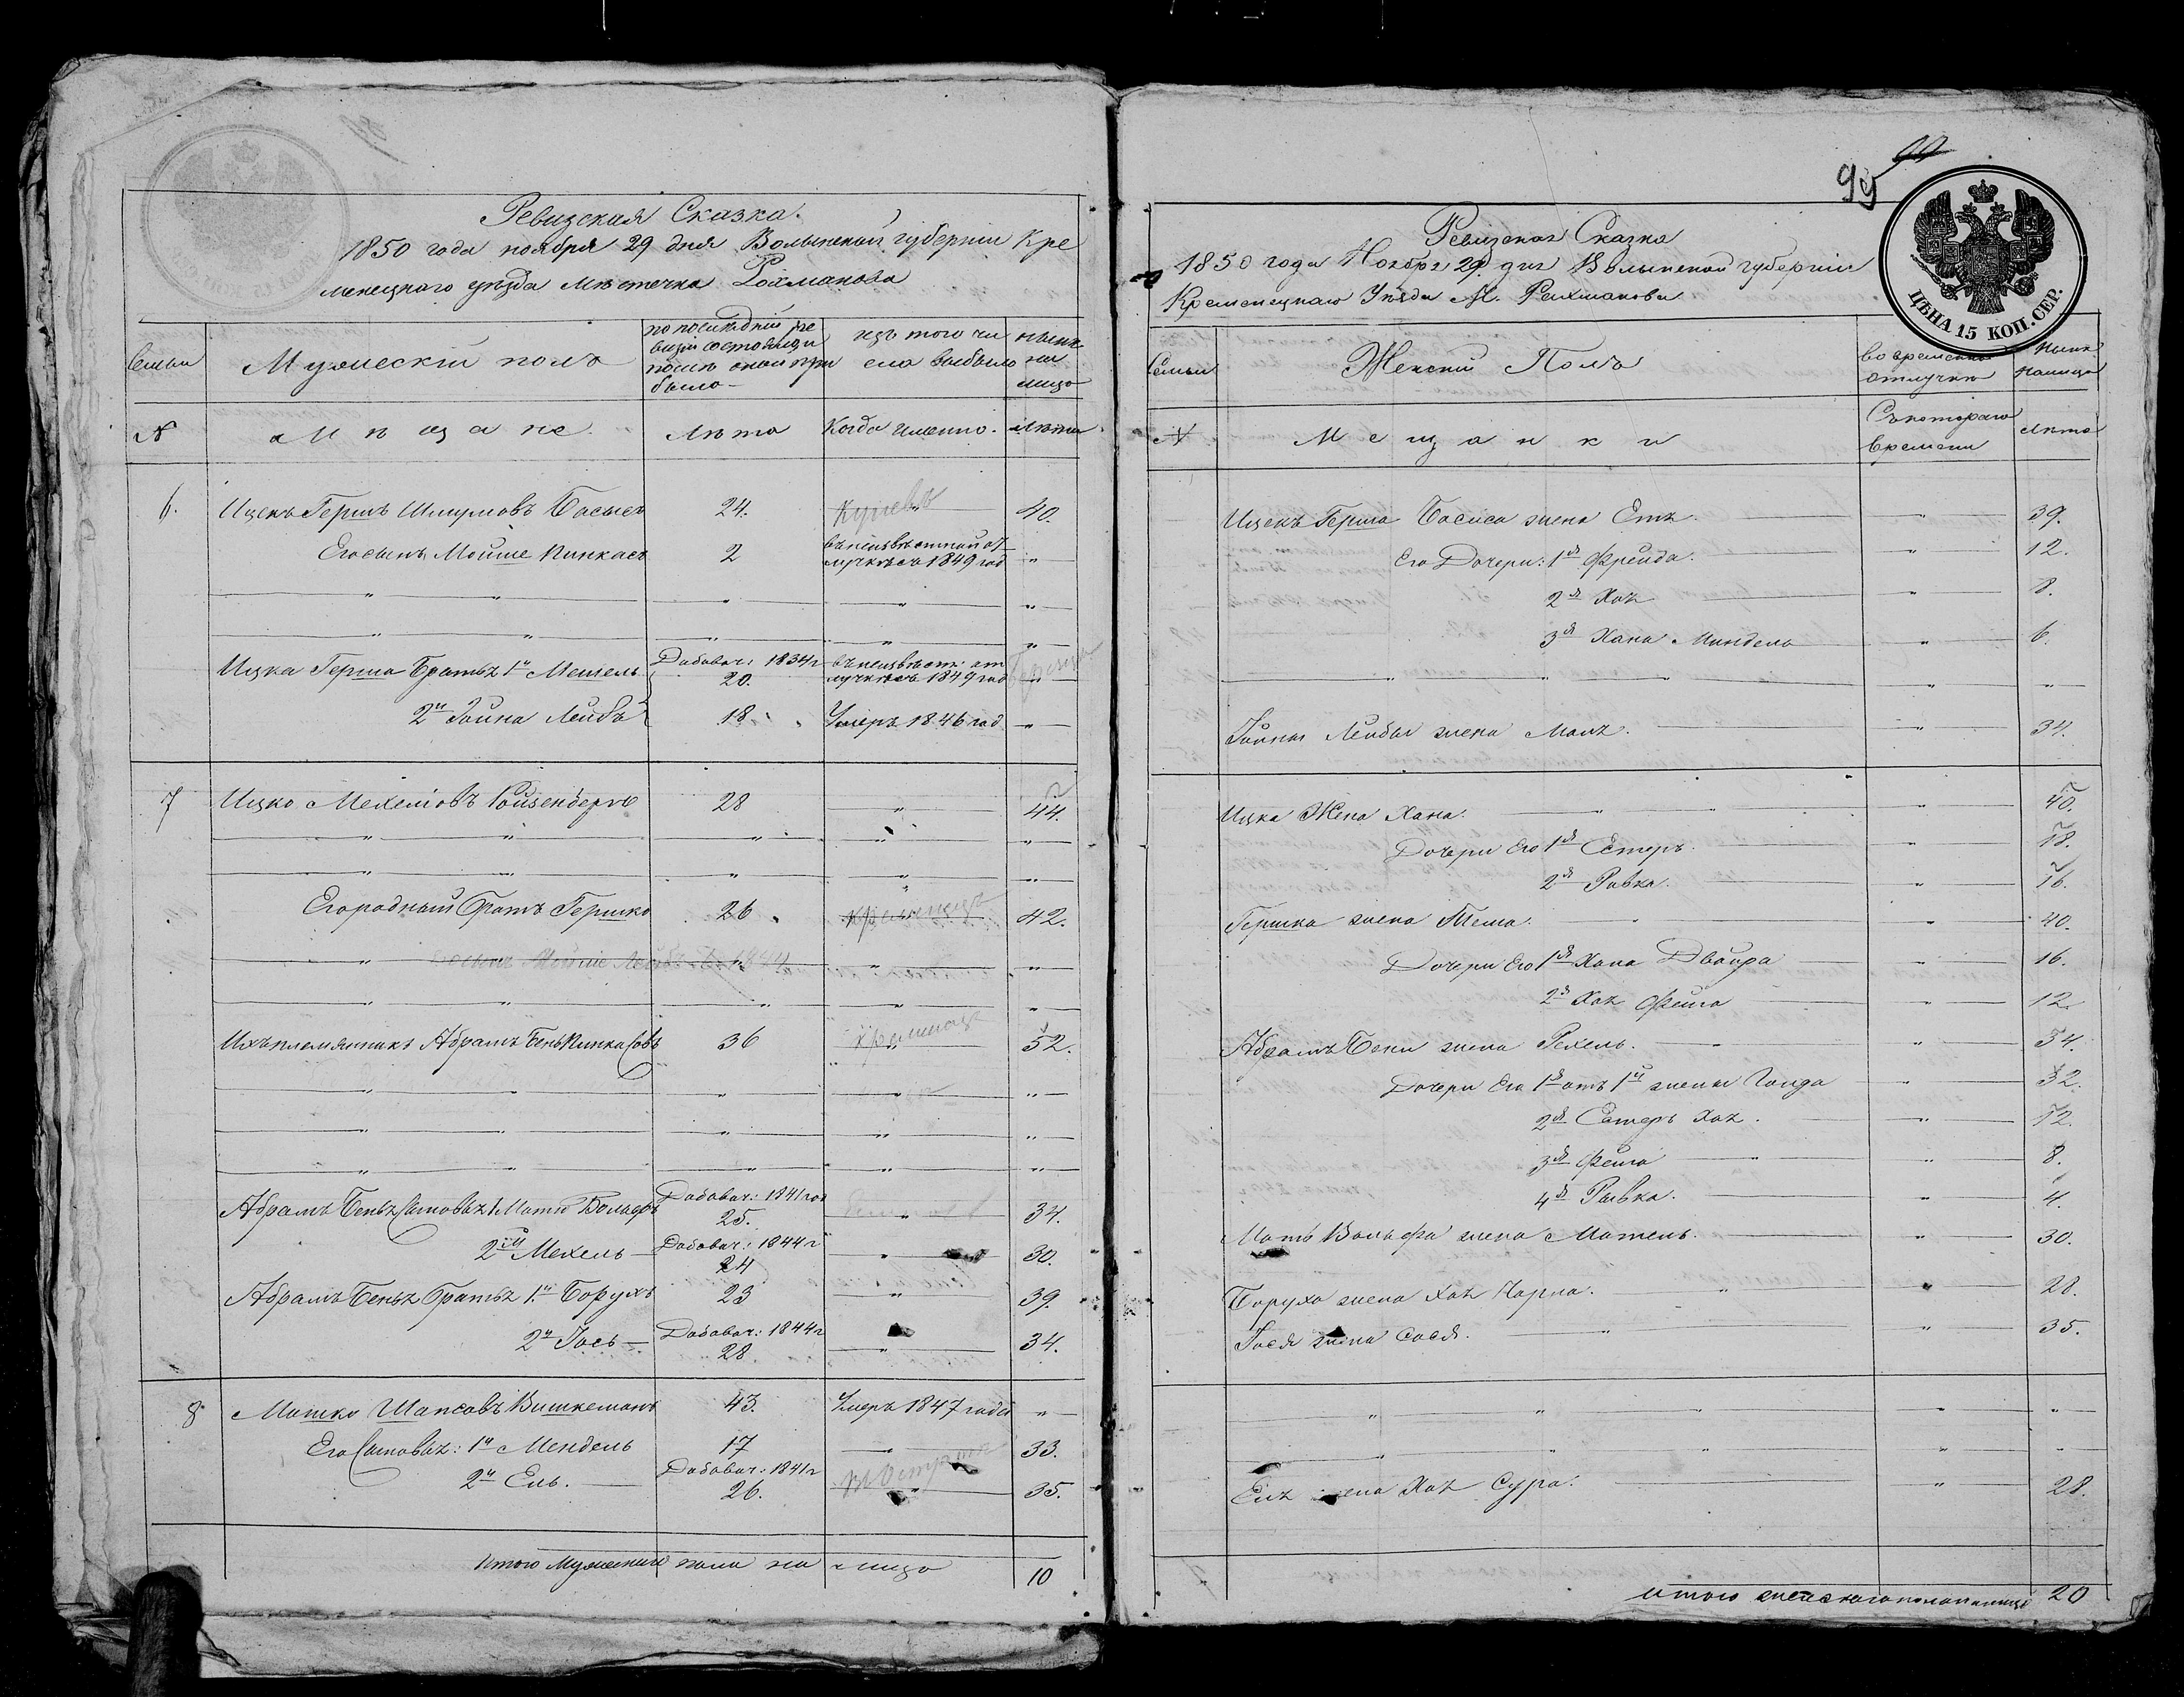 Ревизская Сказка.
1850 года ноября 29 дня Волынской губернии Кре
менецкаго уѣзда Мѣстечка Рахманова
Семьи
Мужескій полъ
по послѣдней ре
визіи состояло и
послѣ оной при
было
изъ того чи
сла выбыло
нынѣ
на
лицо
№
Мѣщане
Лѣта
Когда именно.
Лѣта
6. Ицекъ Гершъ Шлумовъ Басисъ 24. 40.
Его сынъ Мойше Пинкасъ 2 въ неизвѣстной от
лучкѣ съ 1849 год "
Ицка Герша Братья 1й Мешель Добавоч: 1834г 20. въ неизвѣст: от
лучкѣ съ 1849 год "
2й Іойна Лейбъ 18 Умеръ 1846 год "
7 Ицко Мехелювъ Ройзенбергъ 28 " 44.
Его родный братъ Гершко 26 Кременецъ 42.
Ихъ племянникъ Абрамъ Бень Пинкасовъ 36 " 52.
Абрамъ Беня Сыновья 1 Мати Вольфъ Добавоч: 1841 год 25. " 34.
2й Мехель Добавоч: 1844г 24 " 30.
Абрамъ Беня Братья 1й Борухъ 23 " 39.
2й Іось Добавоч: 1844г 28 " 34.
8 Мошко Шапсовъ Вишкеманъ 43. Умеръ 1847 года "
Его Сыновья: 1й Мендель 17 33.
2й Ель. Добавоч: 1841г 26. " 35.
Итого Мужеский пола на лицо 10
99
ЦѢНА 15 КОП. СЕР.
Ревизская Сказка
1850 года Ноября 29 дня Волынской губерніи
Кременецкаго Уѣзда М. Рахманова
Семьи
Женскій Полъ
во временной
отлучкѣ
Нынѣ
налицо
№
Мещанки
Съ котораго
времени
Лѣта
Ицекъ Герша Басиса жена Етя. " 39.
Его Дочери: 1я Фрейда. " 12.
2я Хая " 8.
3я Хана Миндель " 6.
Іойны Лейбы жена Маля. " 34.
Ицка Жена Хана. " 40.
Дочери Его 1я Естеръ. " 18.
2я Ривка. " 16.
Гершка жена Тема. " 40.
Дочери Его 1я Хана Двойра " 16.
2я Хая Фейга " 12.
Абрамъ Бени жена Рехель. " 34.
Дочери Его 1я отъ 1й жены Голда " 32.
2я Естеръ Хая. " 12.
3я Фейга " 8.
4я Рывка. " 4.
Мати Вольфа жена Матель. " 30.
Боруха жена Хая Чарна. " 28.
Іося жена Сося. " 35.
Еля жена Хая Сура. " 28.
Итого женскаго пола налицо 20